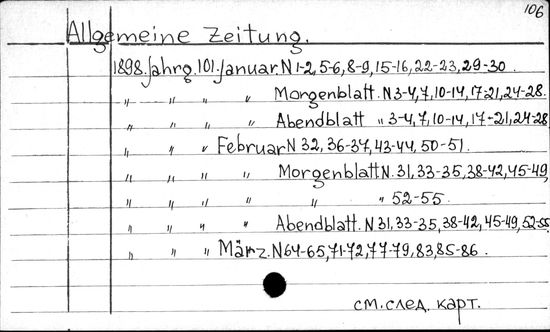 106
Allgemeine Zeitung.
1898. Jahrg. 101. Januar. N 1-2, 5-6, 8-9, 15-16, 22-23, 29-30.
„ „ „ „ Morgenblatt. N 3-4, 7, 10-14, 17-21, 24-28.
„ „ „ „ Abendblatt „ 3-4, 7, 10-14, 17-21, 24-28
„ „ „ Februar N 32, 36-37, 43-44, 50-51.
„ „ „ „ Morgenblatt N. 31, 33-35, 38-42, 45-49,
„ „ „ „ „ „ 52-55.
„ „ „ „ Abendblatt. N 31, 33-35, 38-42, 45-49, 52-55
„ „ „ März. N 64-65, 71-72, 77-79, 83, 85-86.
см. след. карт.